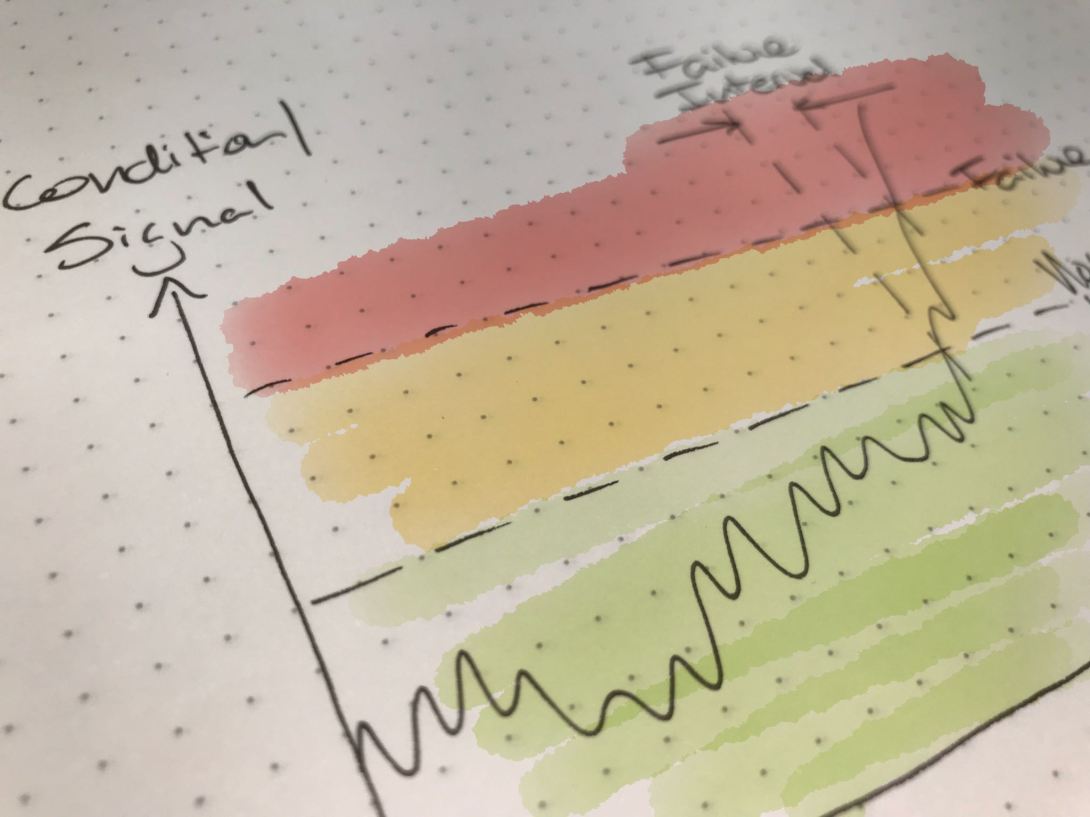 Failure
Interval
Condition/
Signal
Failure